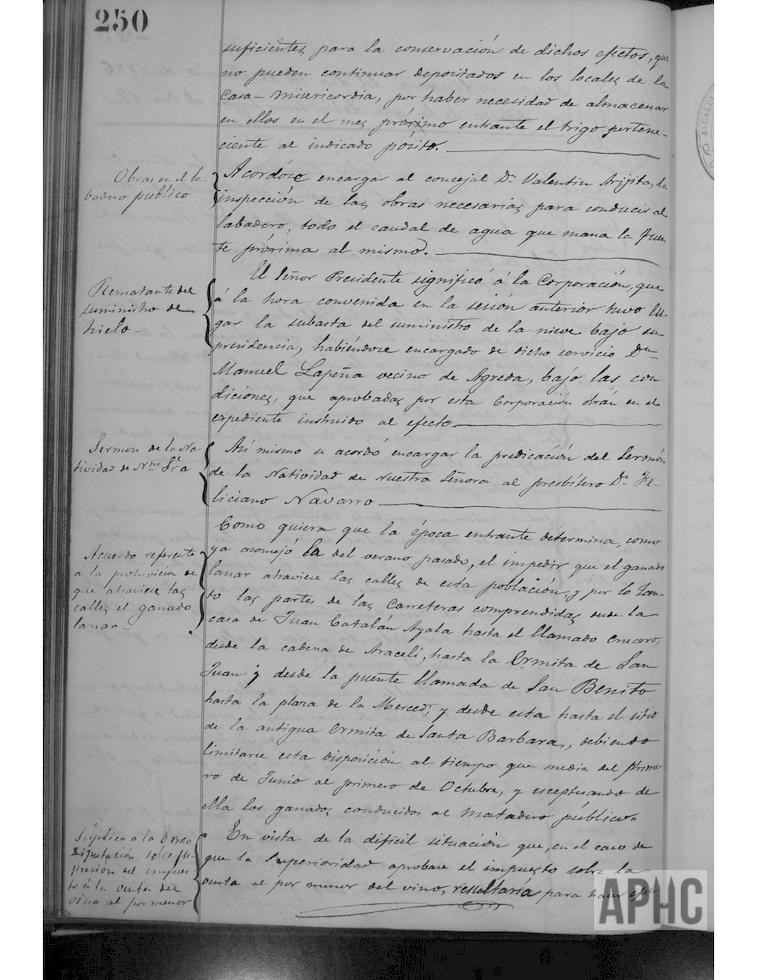 250
suficientes para la conservación de dichos efectos, que
no pueden continuar depositados en los locales de la
Casa-Misericordia, por haber necesidad de almacenar
en ellos en el mes próximo entrante el trigo pertene-
ciente al indicado pósito.
Obras en el la-
badero público
Acordóse encargar al concejal Dn Valentin Arijita, la
inspección de las obras necesarias para conducir al
labadero, todo el caudal de agua que mana la fuen-
te próxima al mismo.
Rematante del
suministro de
hielo
El Señor Presidente significó á la Corporación, que
á la hora convenida en la sesión anterior tuvo lu-
gar la subasta del suministro de la nieve bajo su
presidencia, habiéndose encargado de dicho servicio Dn
Manuel Lapeña vecino de Agreda, bajo las con-
diciones, que aprobadas por esta Corporación obran en el
expediente instruido al efecto.
Sermon de la Na-
tividad de Ntra Sra
Asi mismo se acordó encargar la predicación del Sermón
de la Natividad de Nuestra Señora al presbítero Dn Fe-
liciano Navarro
Acuerdo referente
a la prohivicion de
que atraviese las
calles el ganado
lanar
Como quiera que la época entrante determina como
ya aconsejó la del verano pasado, el impedir que el ganado
lanar atraviese las calles de esta población, y por lo tan-
to las partes de las Carreteras comprendidas desde la
casa de Juan Catalán Ayala hasta el llamado Crucero,
desde la cadena de Araceli, hasta la Ermita de San
Juan y desde la puente llamada de San Benito
hasta la plaza de la Merced, y desde esta hasta el sitio
de la antigua Ermita de Santa Barbara, debiendo
limitarse esta disposición al tiempo que media del prime-
ro de Junio al primero de Octubre, y esceptuando de
ella los ganados conducidos al matadero público.
Súplica a la Exma
Diputación sobre su-
presión del impues-
to á la venta del
vino al por menor
En vista de la dificil situación que, en el caso de
que la Superioridad aprobase el impuesto sobre la
venta al por menor del vino, resultaria para hacer
APHC